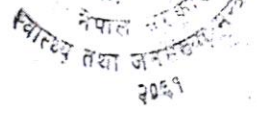 नेपाल सरकार
स्वास्थ्य तथा जनसंख्या
२०६१